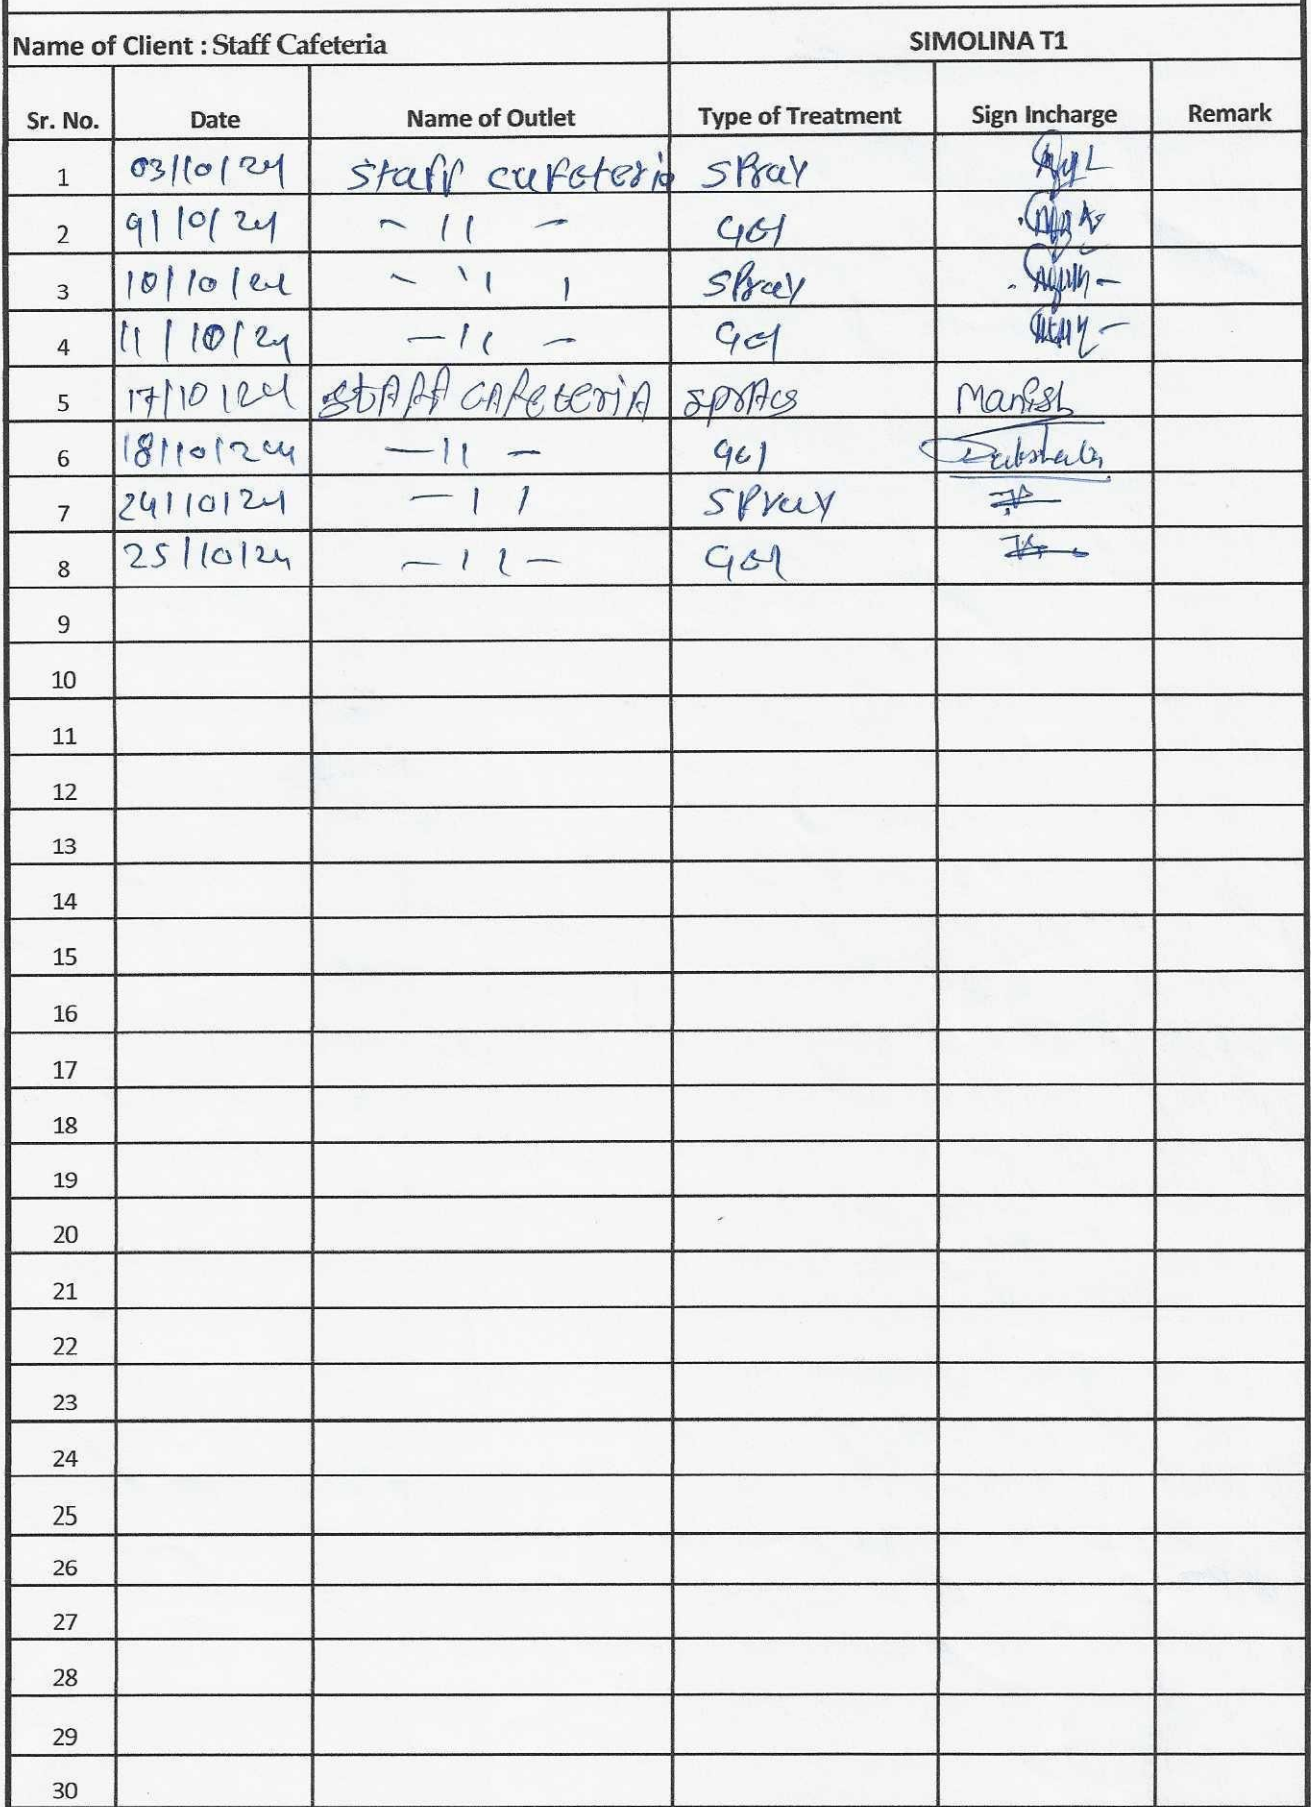 Name of Client : Staff Cafeteria SIMOLINA T1
Sr. No. Date Name of Outlet Type of Treatment Sign Incharge Remark
1 03/10/24 Staff cafeteria Spray
2 9/10/24 - 11 - Gel
3 10/10/24 - 11 Spray
4 11/10/24 - 11 - Gel
5 17/10/24 STAFF CAFETERIA Manish
6 18/10/24 - 11 - Gel
7 24/10/24 - 11 Spray
8 25/10/24 - 11 - Gel
9
10
11
12
13
14
15
16
17
18
19
20
21
22
23
24
25
26
27
28
29
30